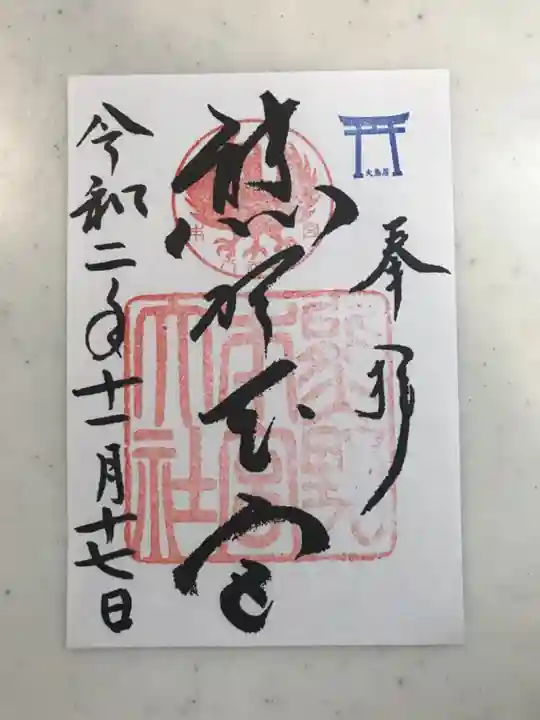 大鳥居
奉拝
熊野本宮
熊野
本宮
大社
令和二年十一月十七日